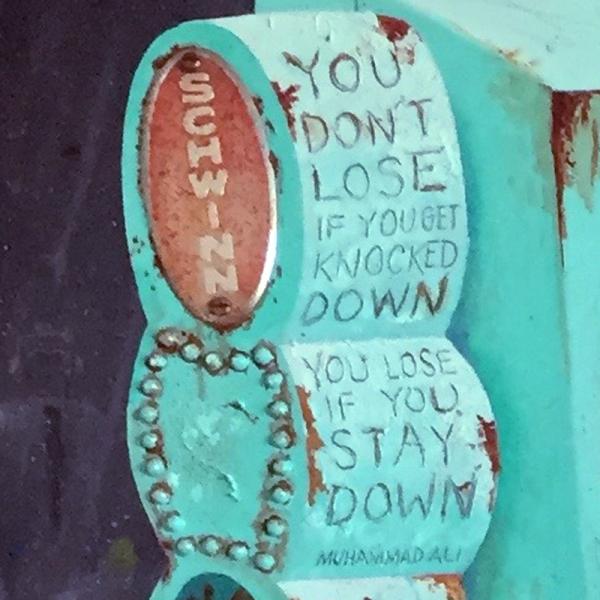 SCHWINN
YOU
DON'T
LOSE
IF YOU GET
KNOCKED
DOWN
YOU LOSE
IF YOU
STAY
DOWN
MUHAMMAD ALI